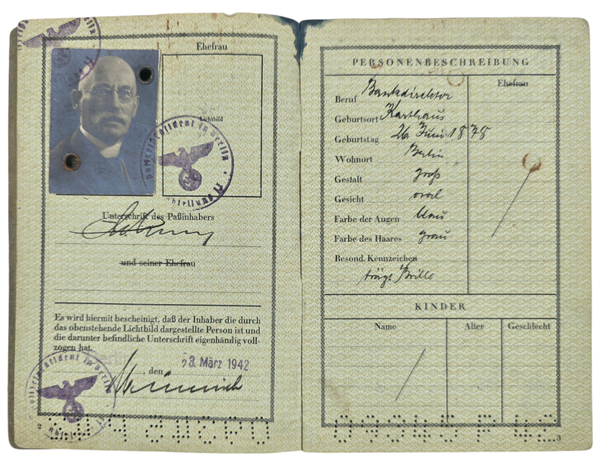 Ehefrau
Lichtbild
Polizeipräsident in Berlin
Abteilung II
Unterschrift des Paßinhabers
und seiner Ehefrau
Es wird hiermit bescheinigt, daß der Inhaber die durch
das obenstehende Lichtbild dargestellte Person ist und
die darunter befindliche Unterschrift eigenhändig voll-
zogen hat.
, den 3. März 1942
Polizeipräsident in Berlin
2
PERSONENBESCHREIBUNG
Ehefrau
Beruf Bankdirektor
Geburtsort Karthaus
Geburtstag 26 Juni 1878
Wohnort Berlin
Gestalt groß
Gesicht oval
Farbe der Augen blau
Farbe des Haares grau
Besond. Kennzeichen
trägt Brille
KINDER
Name Alter Geschlecht
3